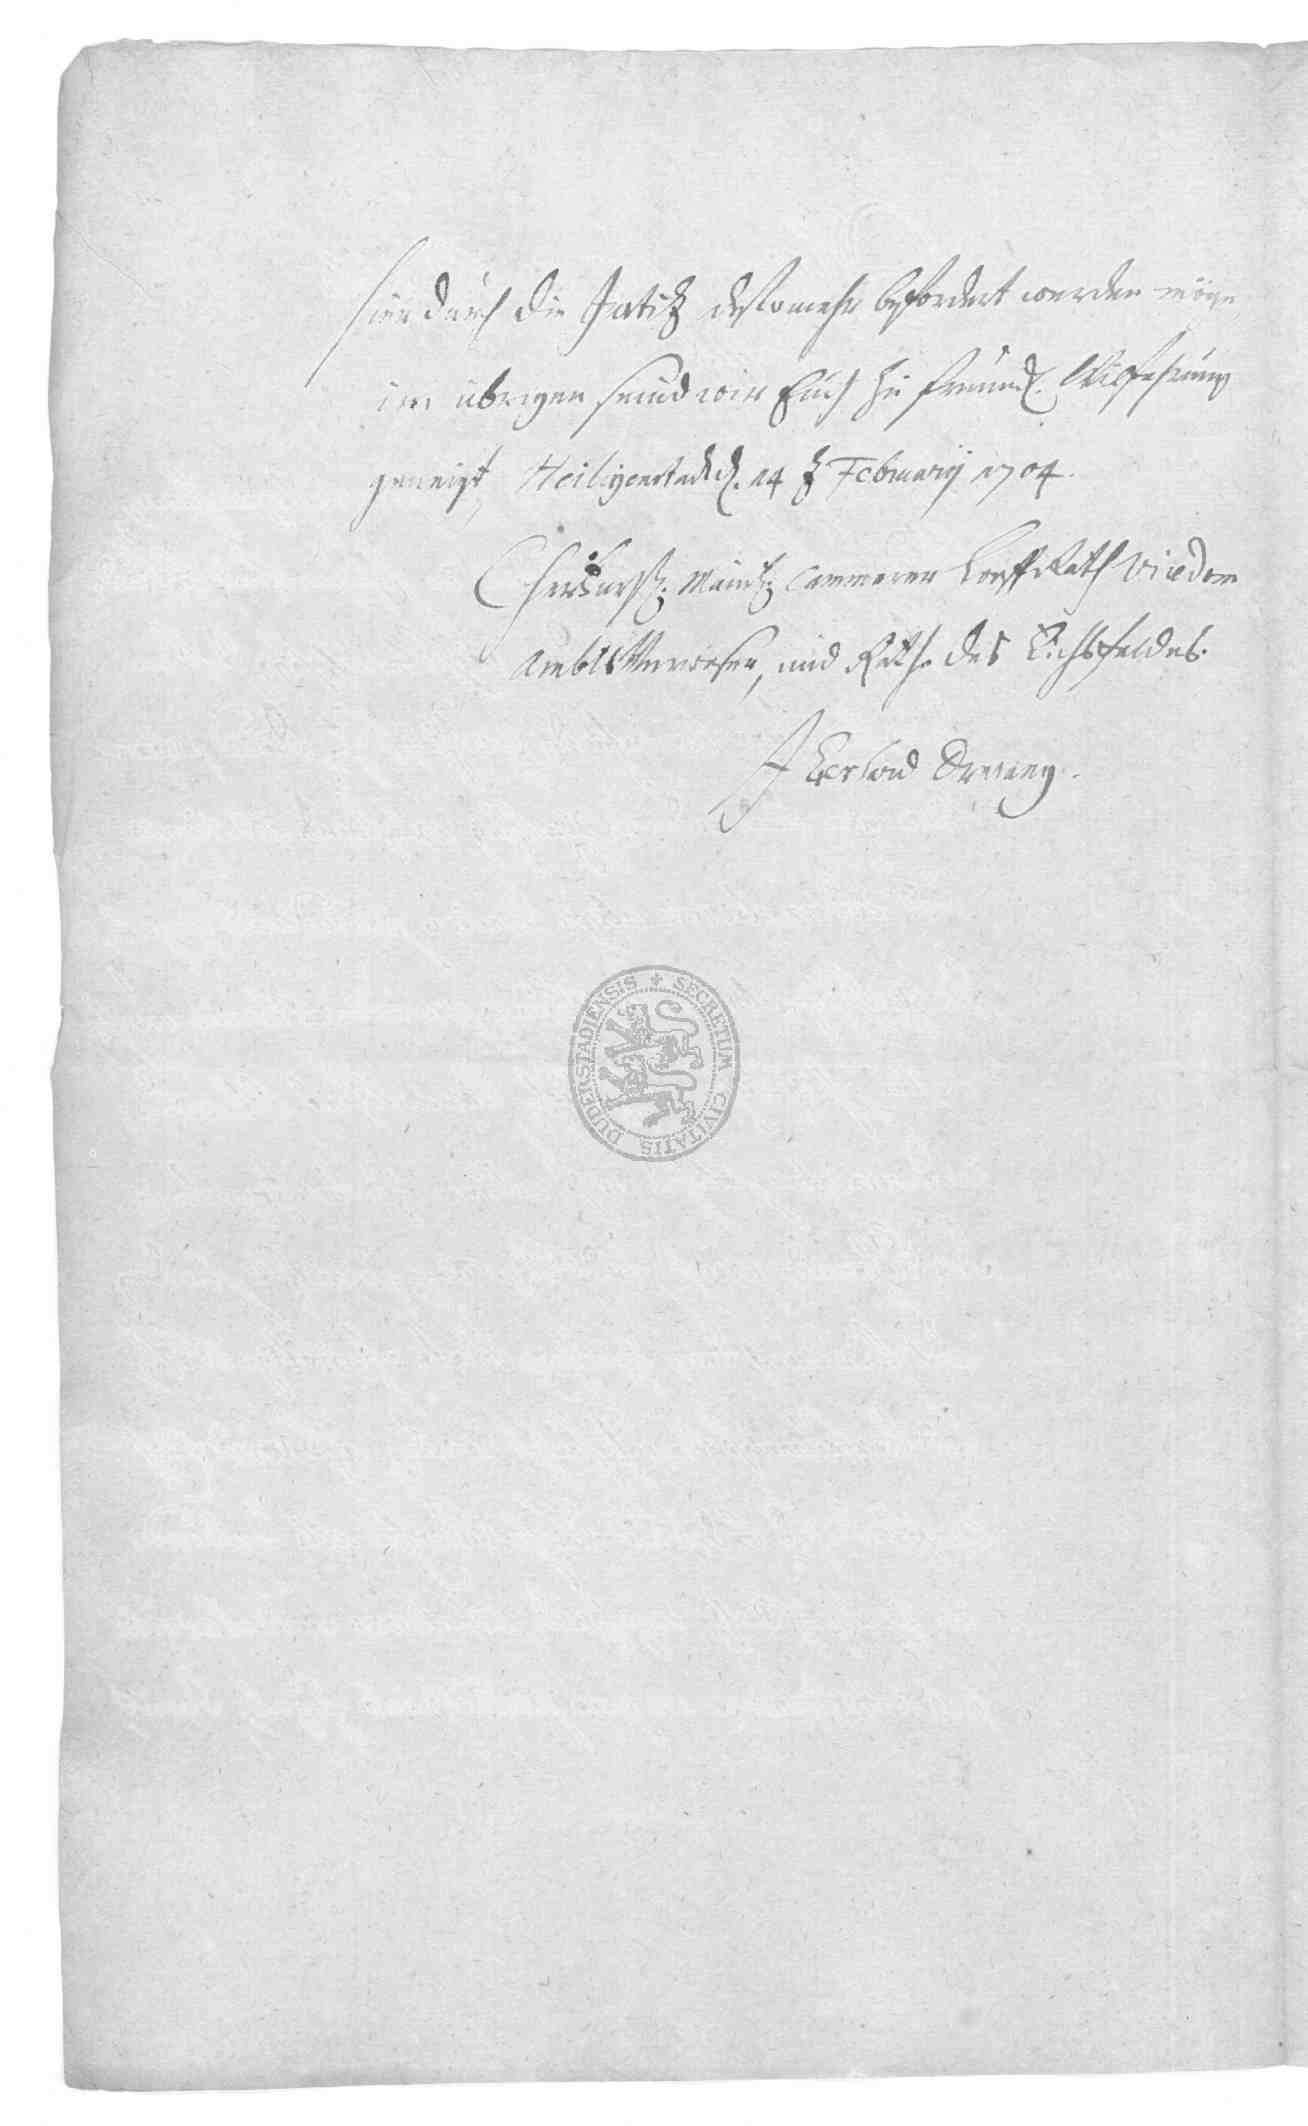 hierdurch die Justitz destomehr befordert werden möge,
im übrigen seind wir Euch zu freundl. Wilfahrung
geneigt, Heiligenstadt d. 14 t Februarij 1704.
Churfürstl. Maintz. Cammerer Hoff Rath Vicedom
Ambts Verweser, und Räthe des Eichsfeldes.
SECRETUM CIVITATIS DUDERSTADIENSIS